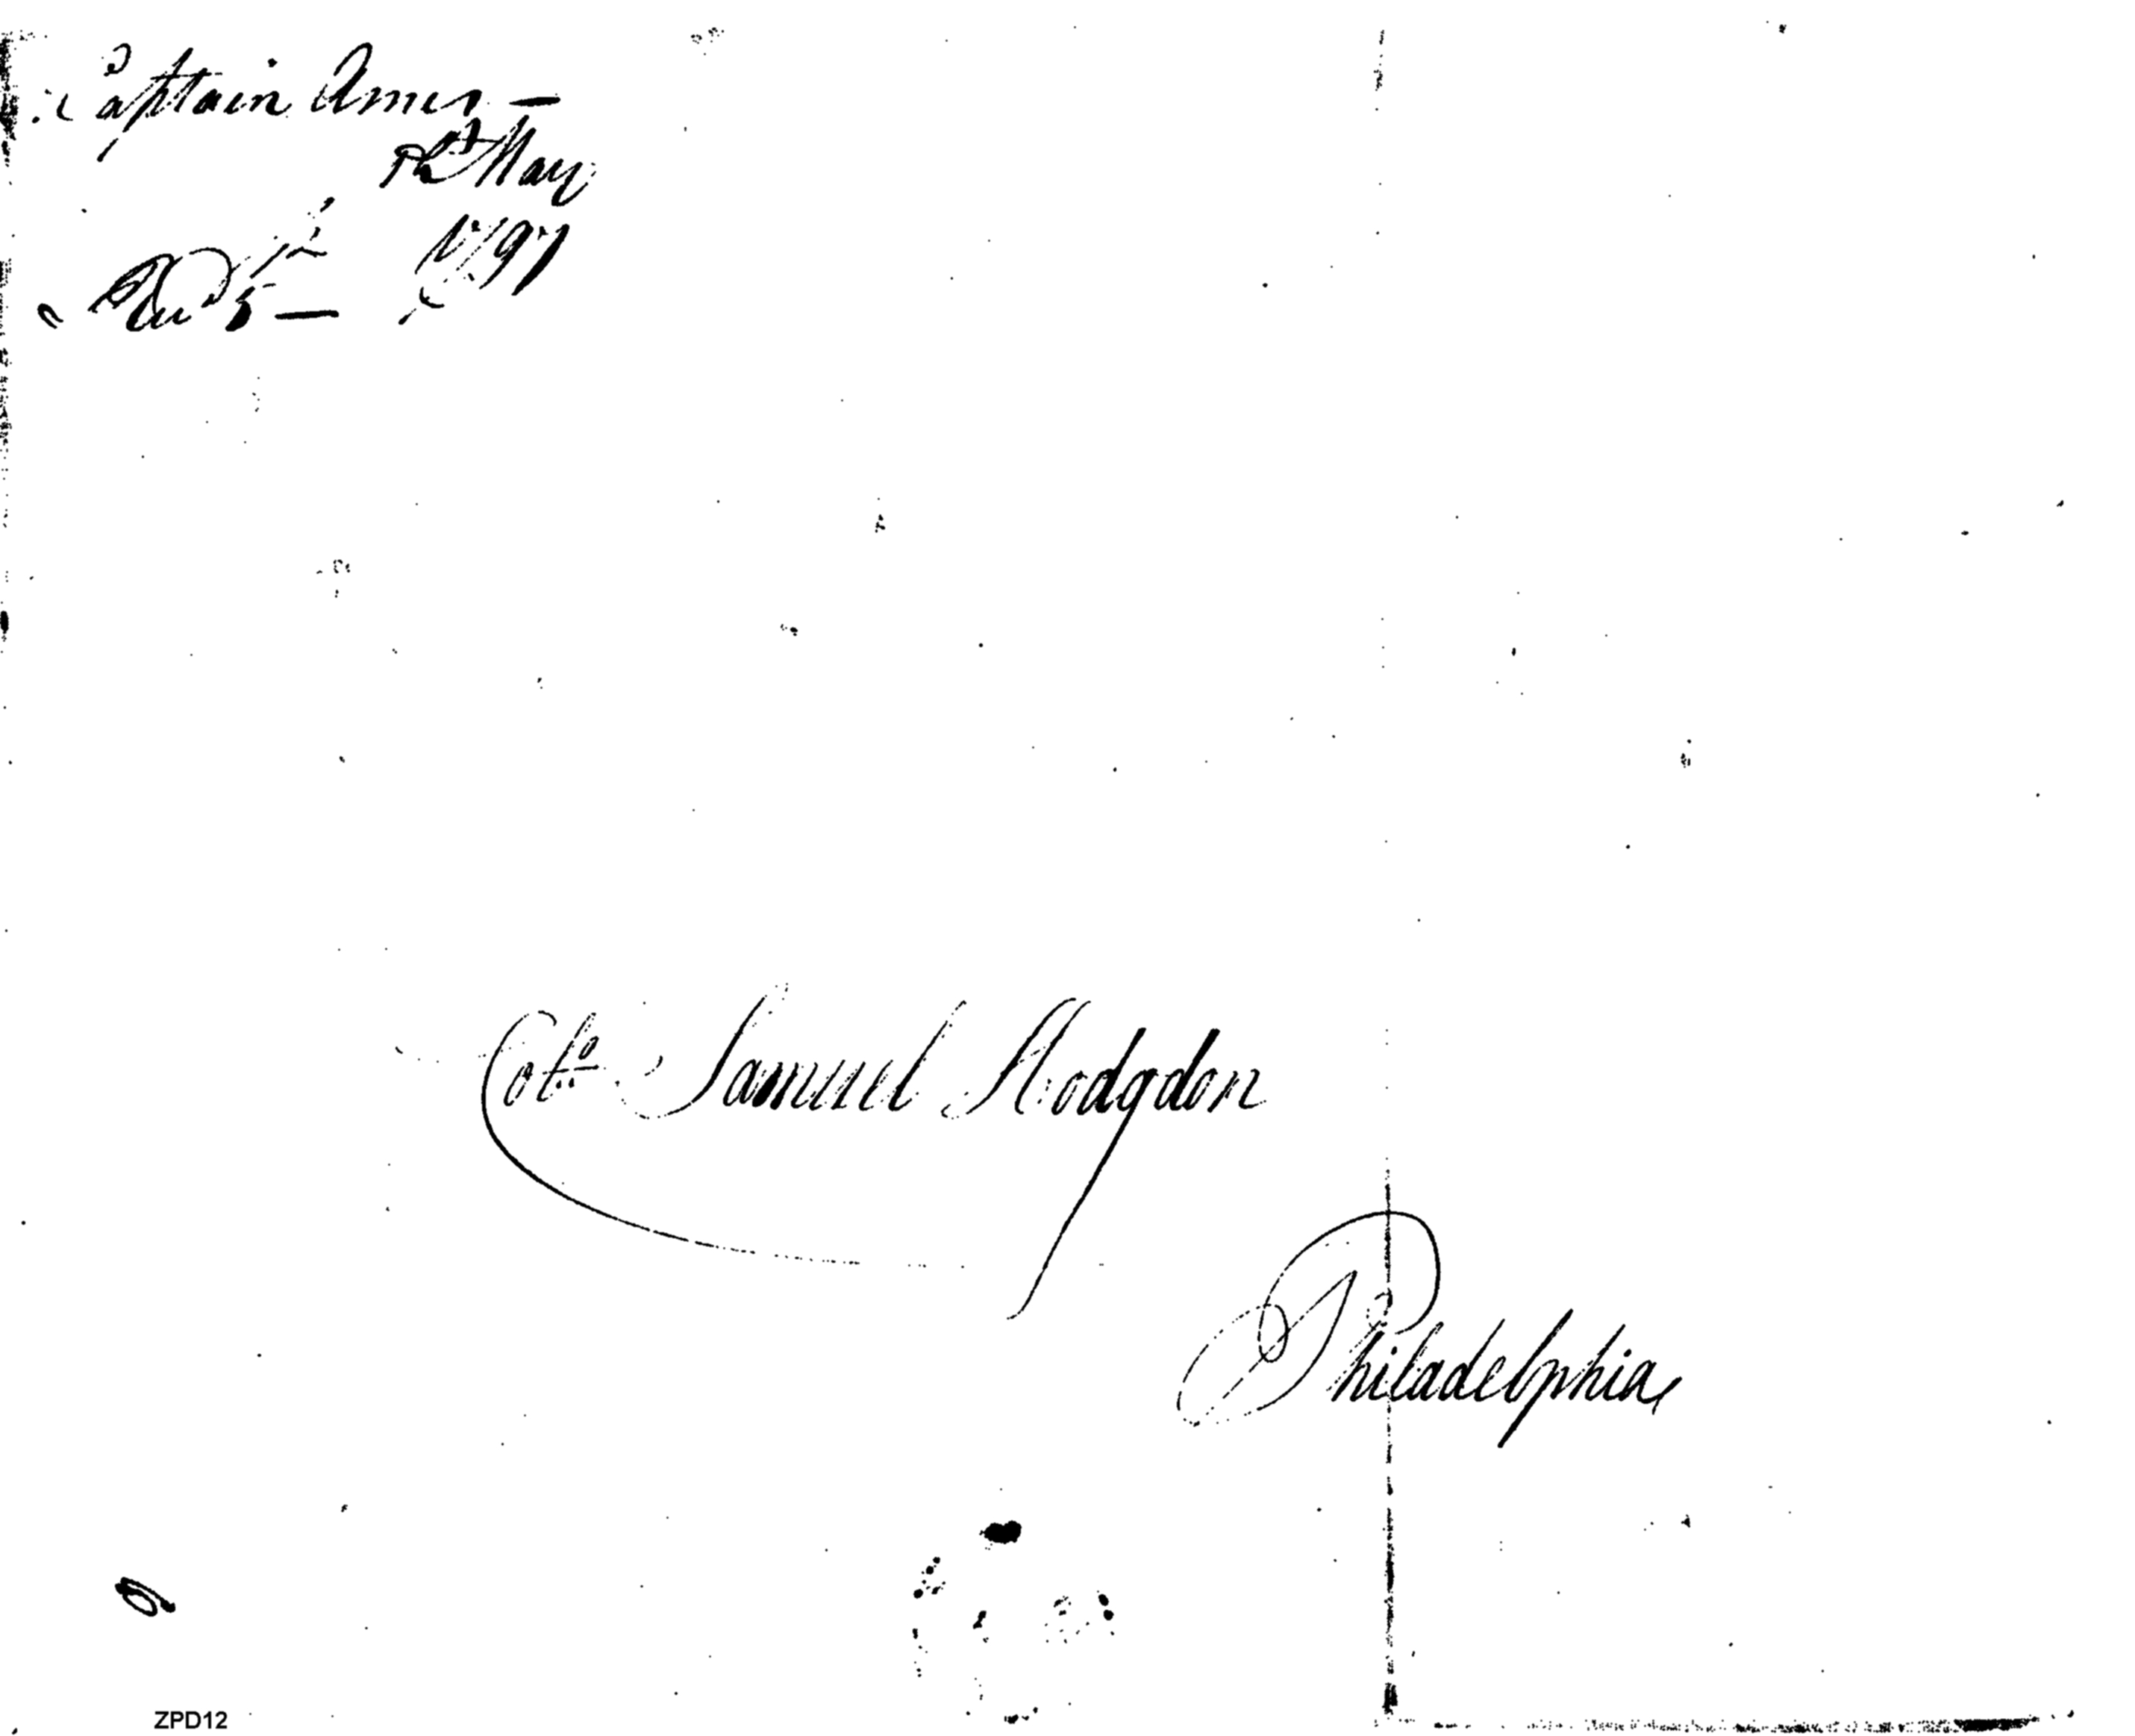 Captain Ames —
May
1797
Colo. Samuel Hodgdon
Philadelphia
ZPD12